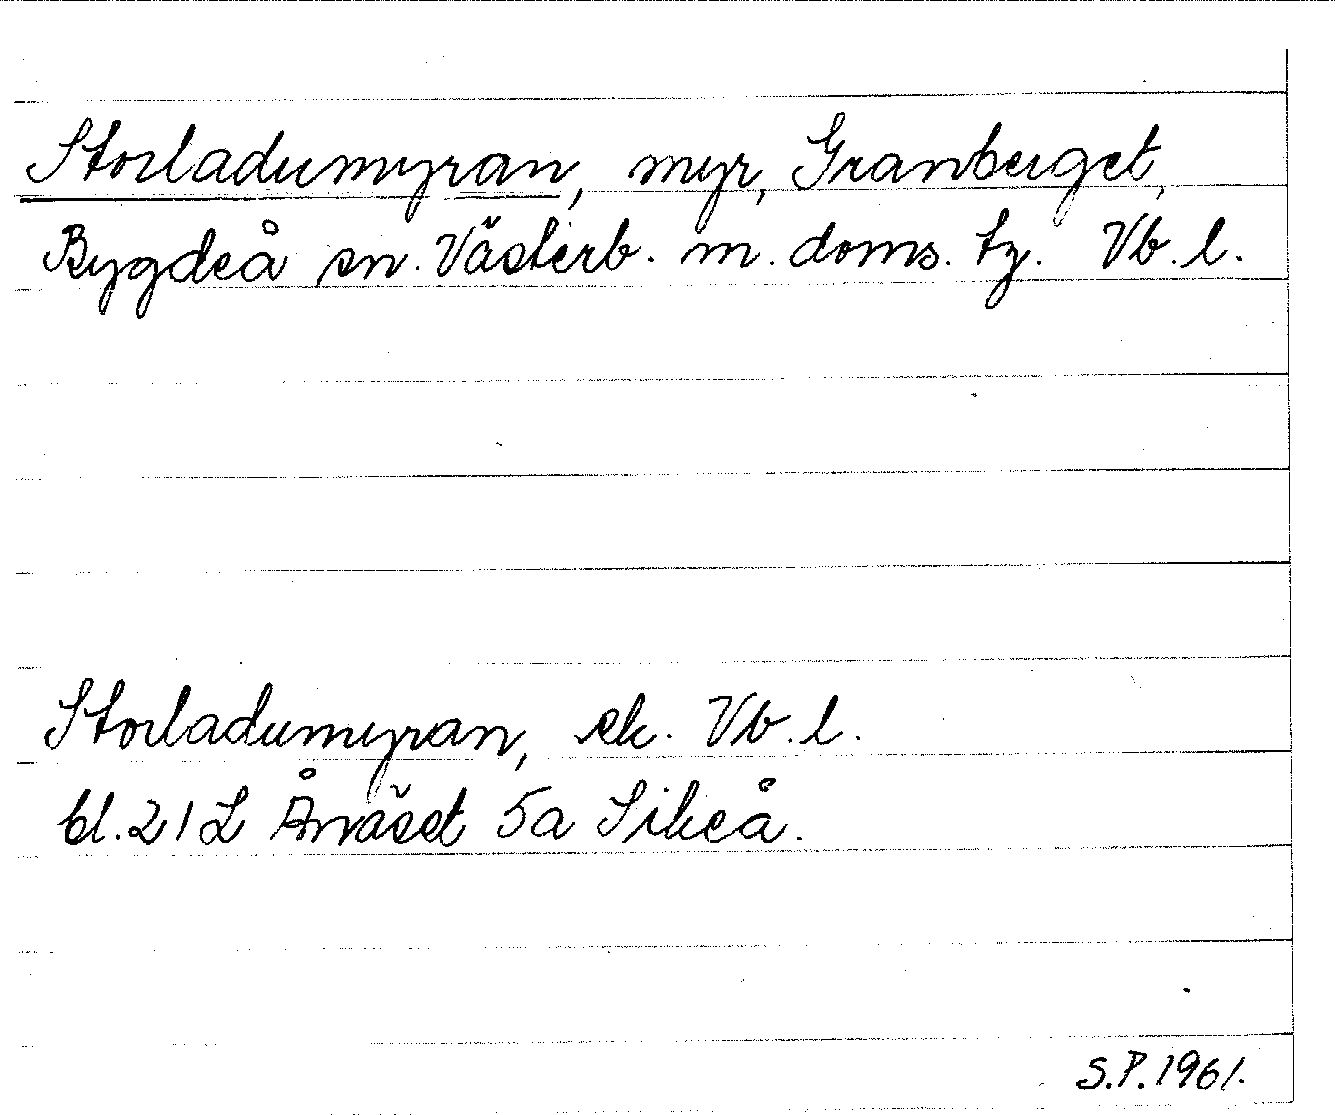 Storladumyran, myr, Granberget,
Bygdeå sn. Västerb. m. doms. tg. Vb. l.
Storladumyran, ek. Vb. l.
bl. 21 L Ånäset 5a Sikeå.
S.P. 1961.